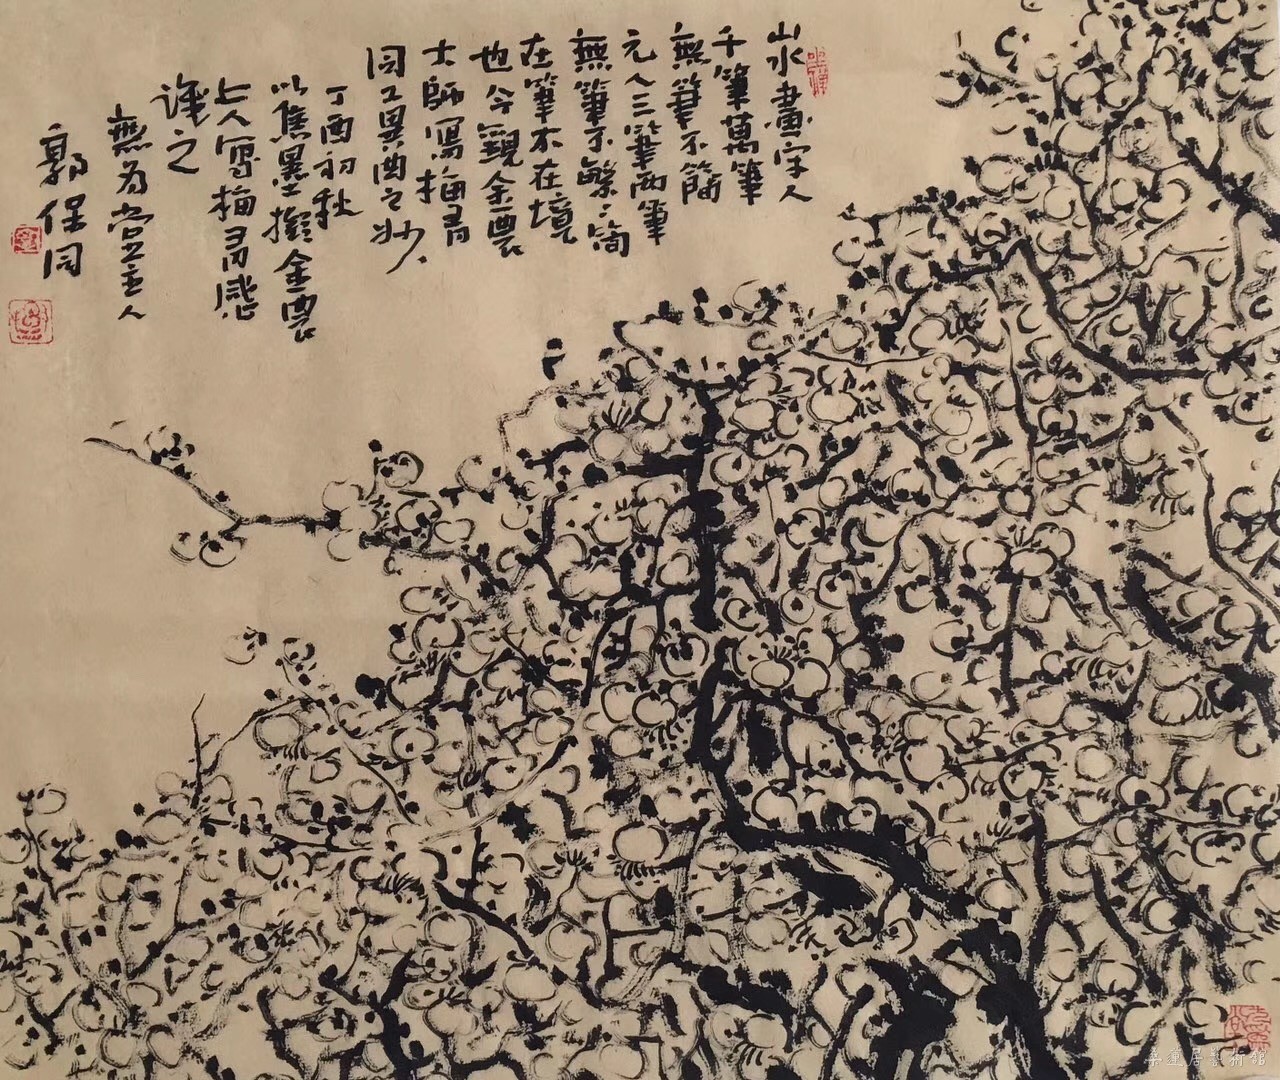 山水畫宋人
千筆萬筆
無筆不簡
元人三筆兩筆
無筆不繁繁簡
在筆不在境
也今觀金農
大師寫梅有
同工異曲之妙
丁酉初秋
以焦墨擬金農
七人寫梅有感
識之
無為堂主人
郭保同
朵雲居藝術館